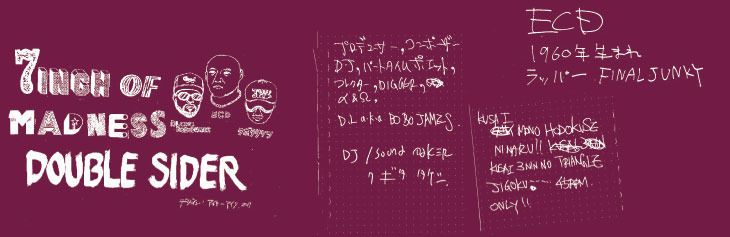 7INCH OF
MADNESS
DOUBLE SIDER
ECD
プロデューサー,コンポーザー
DJ,パートタイムポエット,
DIGGER,
D.L a.k.a BOBO JAMES.
DJ / Sound MAKER
クボタタケシ
ECD
1960年生まれ
ラッパー FINAL JUNKY
KUSAI
MONO HODOKUSE
NINARU!!
KUSAI 3NIN NO TRIANGLE
JIGOKU
ONLY!!